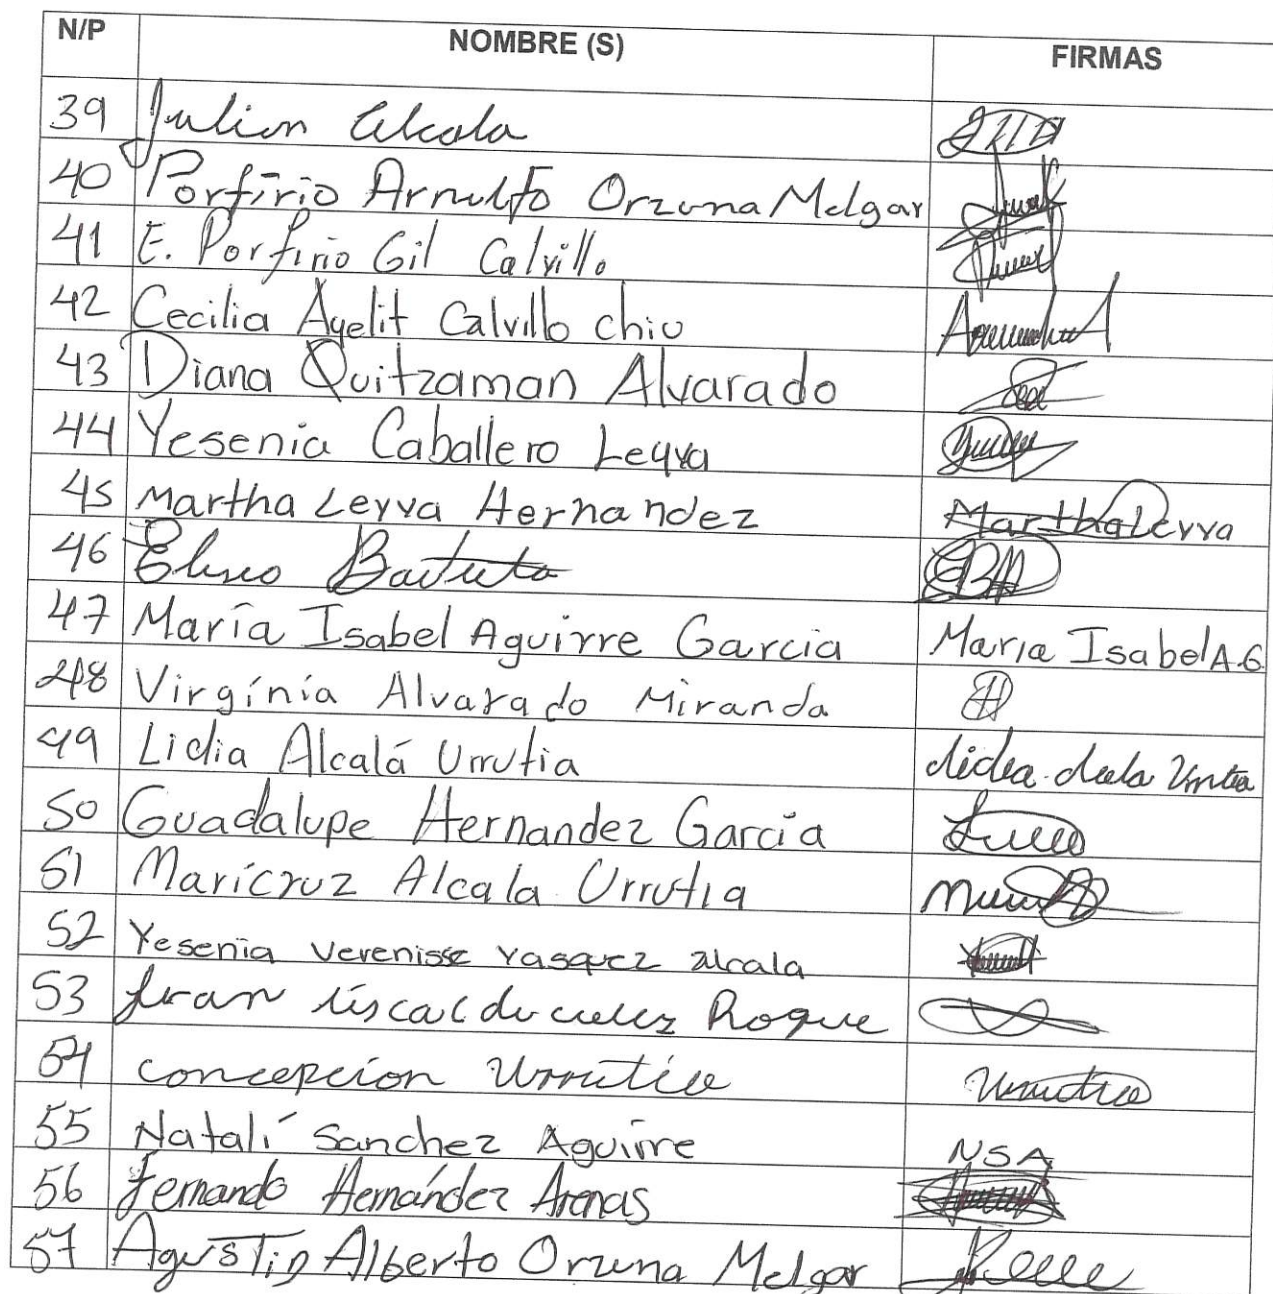 N/P NOMBRE (S) FIRMAS
39 Julian Alcala
40 Porfirio Arnulfo Orzuna Melgar
41 E. Porfirio Gil Calvillo
42 Cecilia Ayelit Calvillo chiu
43 Diana Quitzaman Alvarado
44 Yesenia Caballero Leyva
45 Martha Leyva Hernandez Martha Leyva
46 Eliseo Bautista
47 María Isabel Aguirre Garcia Maria Isabel A.G.
48 Virgínia Alvarado Miranda
49 Lidia Alcalá Urrutia
50 Guadalupe Hernandez Garcia
51 Maricruz Alcala Urrutia
52 Yesenia Verenisse Vasquez alcala
53 Roque
54 concepcion Urrutia Urrutia
55 Natalí Sanchez Aguirre NSA
56 Fernando Hernández Arenas
57 Agustin Alberto Orzuna Melgar